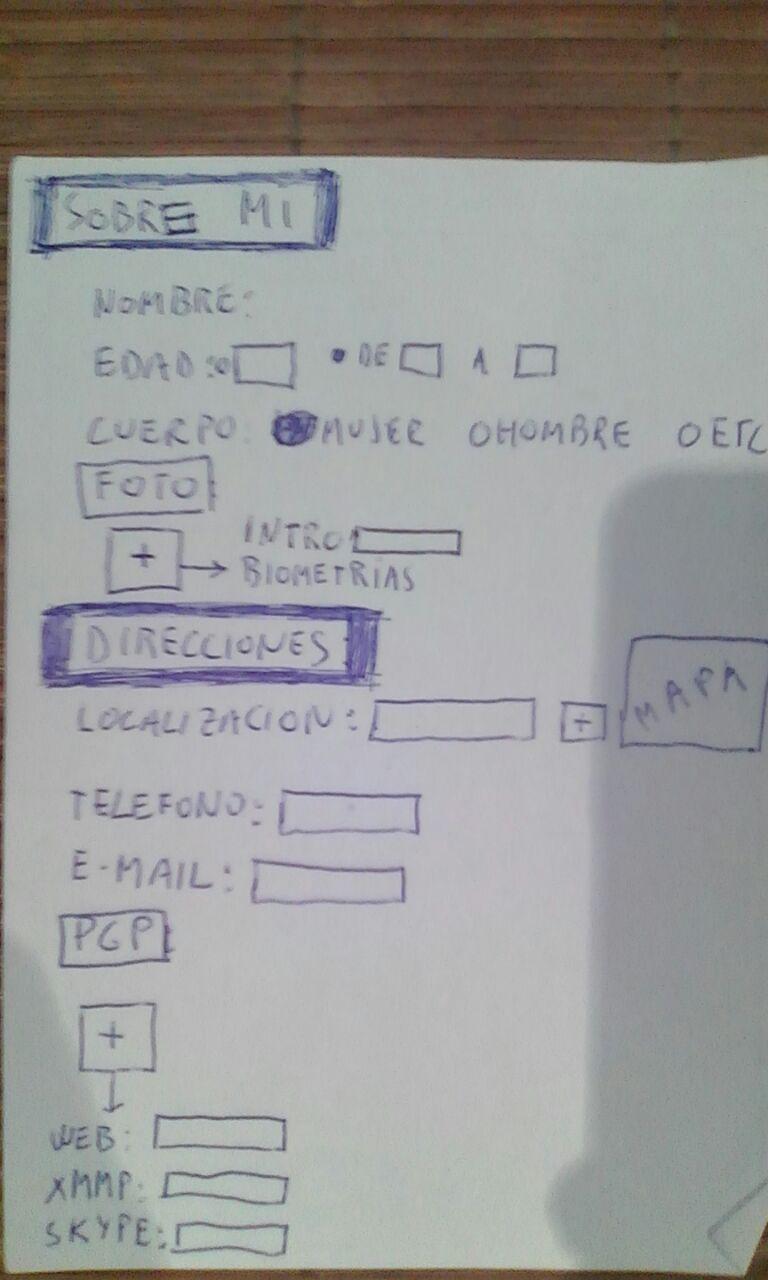 SOBRE MI
NOMBRE:
EDAD: DE A
CUERPO: MUJER O HOMBRE O ETC
FOTO
+ → INTRO
BIOMETRIAS
DIRECCIONES
LOCALIZACION: + MAPA
TELEFONO:
E-MAIL:
PGP
+
WEB:
XMMP:
SKYPE: